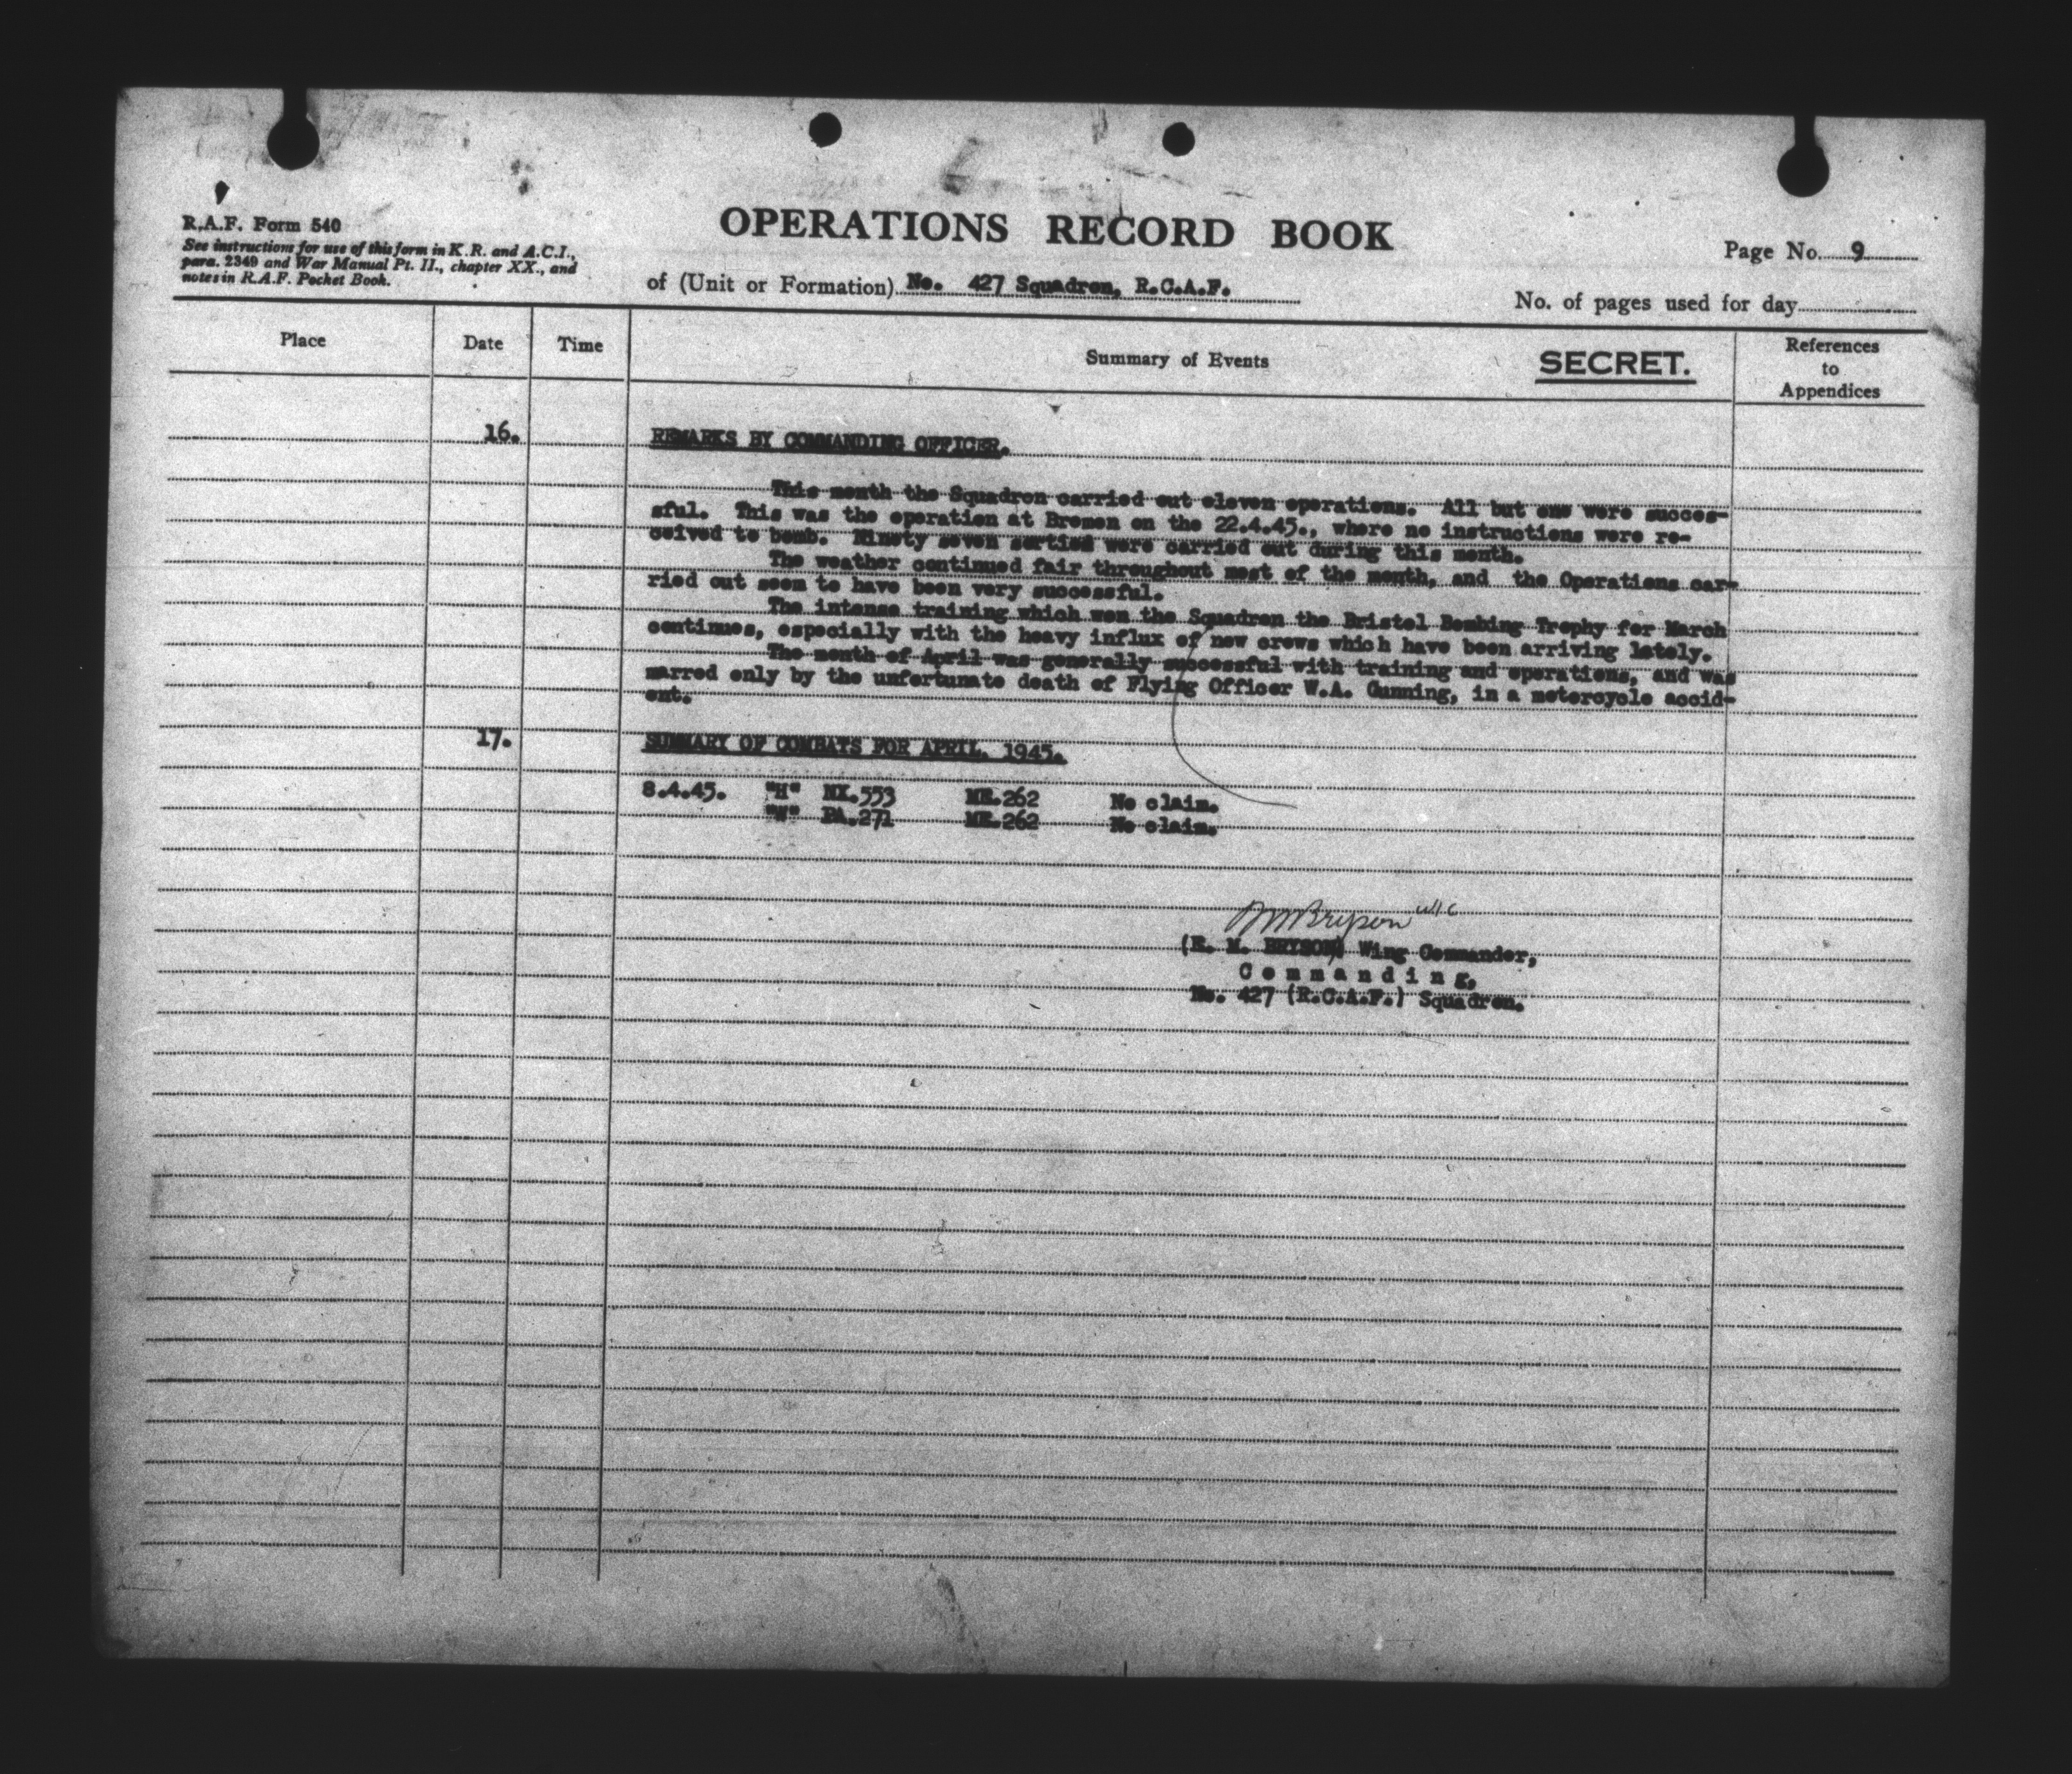 R.A.F. Form 540
See instructions for use of this form in K.R. and A.C.I.,
para. 2349 and War Manual Pt. II., chapter XX., and
notes in R.A.F. Pocket Book.
OPERATIONS RECORD BOOK
of (Unit or Formation) No. 427 Squadron, R.C.A.F.
Page No. 9
No. of pages used for day
Place Date Time Summary of Events SECRET. References
to
Appendices
16. REMARKS BY COMMANDING OFFICER.
This month the Squadron carried out eleven operations. All but one were succes-
sful. This was the operation at Bremen on the 22.4.45., where no instructions were re-
ceived to bomb. Ninety seven sorties were carried out during this month.
The weather continued fair throughout most of the month, and the Operations car-
ried out seem to have been very successful.
The intense training which won the Squadron the Bristol Bombing Trophy for March
continues, especially with the heavy influx of new crews which have been arriving lately.
The month of April was generally successful with training and operations, and was
marred only by the unfortunate death of Flying Officer W.A. Gunning, in a motorcycle accid-
ent.
17. SUMMARY OF COMBATS FOR APRIL. 1945.
8.4.45. "H" NX.553 ME.262 No claim.
"W" PA.271 ME.262 No claim.
Bryson W/C
(E. M. BRYSON) Wing Commander,
C o m m a n d i n g,
No. 427 (R.C.A.F.) Squadron.